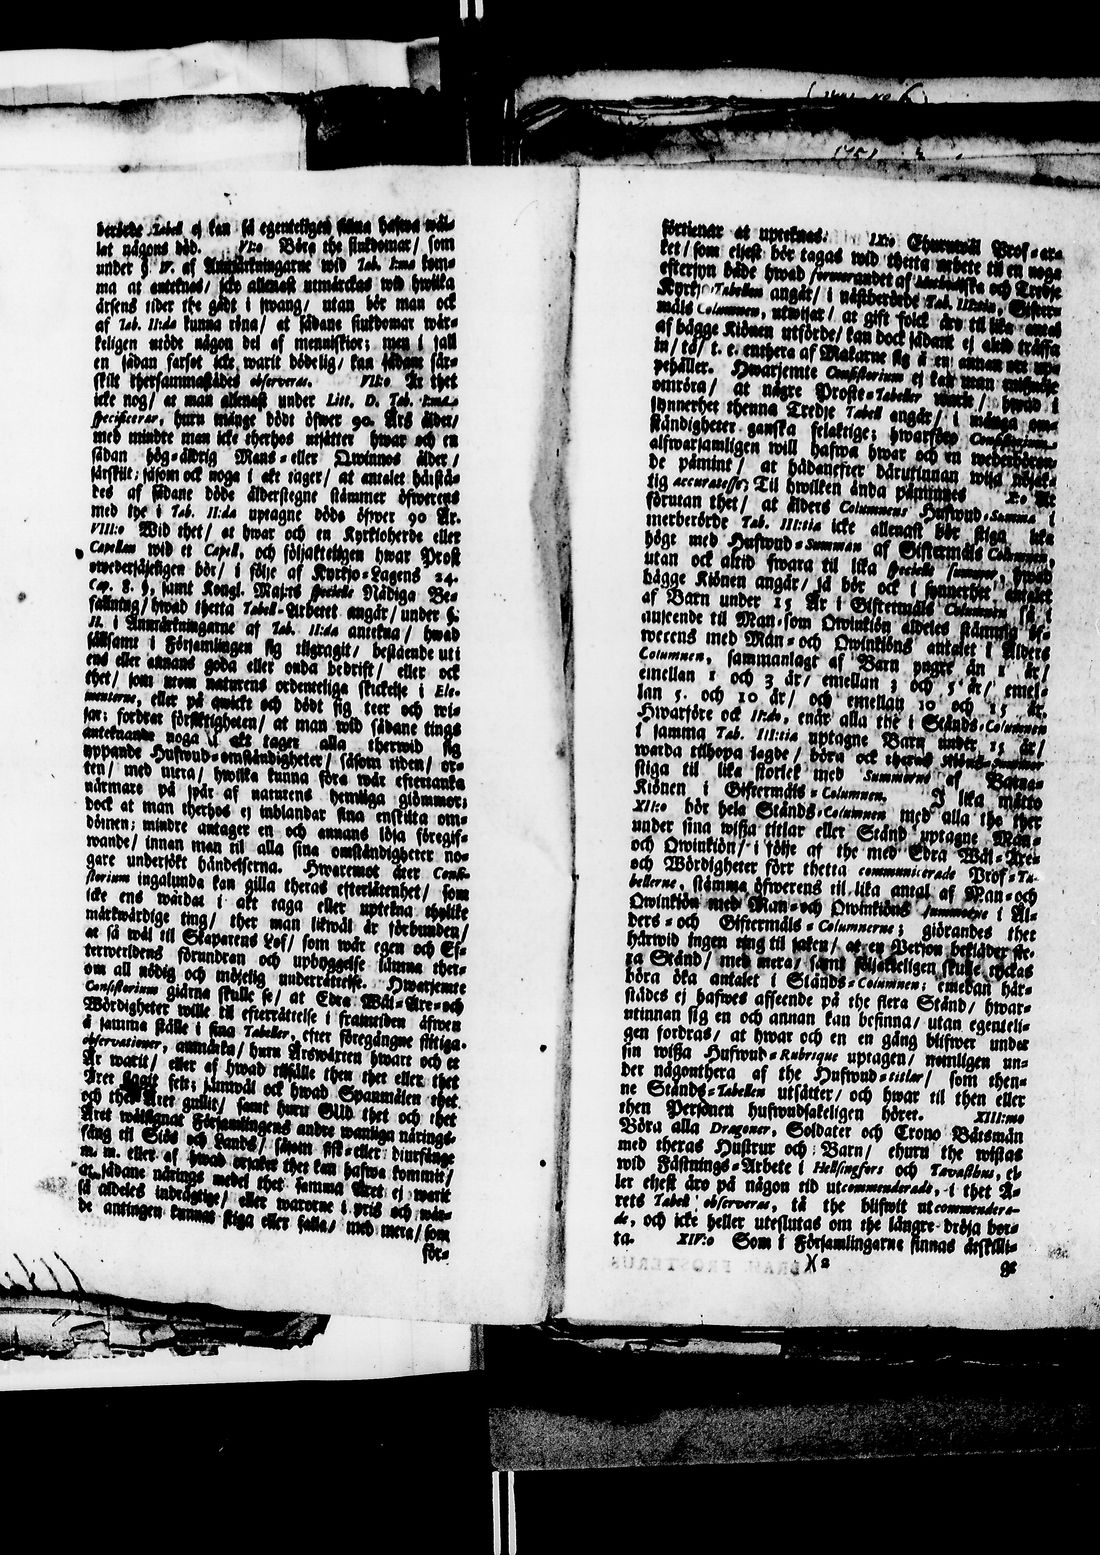 berörde Tabell ej kan så egenteligen sina hafwa wål-
lat någons död. VI:o Böra the siukdomar/ som
under §. IV. af Anmårkningarne wid Tab. I:ma kom-
ma at anteknas/ icke allenast utmårckas wid hwilka
årsens tider the gådt i swang/ utan bör man ock
af Tab. II:da kunna röna/ at sådane siukdomar wår-
keligen mödt någon del af menniskior; men i fall
en sådan farsot icke warit dödelig/ kan sådant sår-
skilt thersammastådes observeras. VII:o År thet
icke nog/ at man allenast under Litt. D. Tab. I:ma
specificerar, huru månge dödt öfwer 90. Års ålder/
med mindre man icke therhos utsåtter hwar och en
sådan hög-åldrig Mans-eller Qwinnos ålder/
sårskilt; såsom ock noga i akt tager/ at antalet hårstå-
des af sådane döde ålderstegne ståmmer öfwerens
med the i Tab. II:da uptagne döde öfwer 90 År.
VIII:o Wid thet/ at hwar och en Kyrkioherde eller
Capellan wid et Capell, och följakteligen hwar Prost
owedersåjeligen bör/ i följe af Kyrkjo-Lagens 24.
Cap. 8. §, samt Kongl. Maj:ts specielle Nådiga Be-
fallning/ hwad thetta Tabell-Arbetet angår/ under §.
II. i Anmårkningarne af Tab. II:da antekna/ hwad
sållsamt i Församlingen sig tilgragit/ bestående uti
ens eller annans goda eller onda bedrift/ eller ock
thet/ som utom naturens ordenteliga skickelse i Ele-
menterne, eller på qwickt och dödt sig teer och wi-
sar; fordrar försiktigheten/ at man wid sådane tings
antecknande noga i akt tager alla therwid sig
yppande Hufwud-omståndigheter/ såsom tiden/ or-
ten/ med mera/ hwilka kunna föra wår eftertanka
nårmare på spår af naturens hemliga giömmor;
dock at man therhos ej inblandar sina enskilta om-
dömen; mindre antager en och annans lösa föregif-
wande/ innan man til alla sina omståndigheter no-
gare undersökt håndelserna. Hwaremot åter Consi-
storium ingalunda kan gilla theras efterlåtenhet/ som
icke ens wårdat i akt taga eller uptekna thylike
mårkwårdige ting/ ther man likwål år förbunden/
at så wål til Skaparens Lof/ som wår egen och Ef-
terwerldens förundran och upbyggelse låmna ther-
om all nödig och möjelig underråttelse. Hwarjemte
Consistorium giårna skulle se/ at Edra Wål-Åre-och
Wördigheter wille til efterråttelse i framtiden åfwen
å samma stålle i sina Tabeller, efter föregångne flitiga
observationer, anmårka/ huru Årswåxten hwart och et
År warit/ eller af hwad tilfålle then thet eller thet
Året slagit felt; jåmwål ock hwad Spanmålen thet
och thet Året gullit/ samt huru GUD thet och thet
Året wålsignat Församlingens andre wanliga nårings-
fång til Siös och Lands/ såsom fisk-eller diurfånge
m. m. eller af hwad orsaker thet kan hafwa kommit/
at sådane nårings medel thet samma Året ej warit
så aldeles indrågtige/ eller warorne i pris och wår-
de antingen kunnat stiga eller falla/ med mera/ som
för-
förtienar at upteknas. IX:o Ehuruwål Prof-ar-
ket/ som eljest bör tagas wid thetta arbete til en noga
eftersyn både hwad formerandet af Mechaniska och Tredje
Kyrkjo-Tabellen angår/ i nåstberörde Tab. III:tia, Gifter-
måls Columnen, utwisar/ at gift folck åro til lika antal
af bågge Kiönen utförde/ kan dock sådant ej altid tråffa
in/ tå/ t. e. enthera af Makarne sig å en annan ort up-
pehåller. Hwarjemte Consistorium ej kan man
omröra/ at någre Proste-Tabeller warit/ hwad i
synnerhet thenna Tredje Tabell angår/ i många om-
ståndigheter ganska felaktige; hwarföre Consistorium
alfwarsamligen will hafwa hwar och en wederböran-
de påmint/ at hådanefter hårutinnan wisa nöjak-
tig accuratesse; Til hwilken ånda påminnes X:o Åt
förutan thet/ at ålders Columnens Hufwud-Summa i
merberörde Tab. III:tia icke allenast bör stiga lika
högt med Hufwud-Summan af Giftermåls Columnen,
utan ock altid swara til lika specielle summor, hwad
bågge Kiönen angår/ så bör ock i synnerhet antalet
af Barn under 15 År i Giftermåls Columnen så i
anseende til Man-som Qwinkiön aldeles ståmma öf-
werens med Mån- och Qwinkiöns antalet i Ålders
Columnen, sammanlagt af Barn yngre ån 1 år/
emellan 1 och 3 år/ emellan 3 och 5 år/ emel-
lan 5. och 10 år/ och emellan 10 och 15 år.
Hwarföre ock II:do, enår alla the i Stånds-Columnen
i samma Tab. III:tia uptagne Barn under 15 år/
warda tilhopa lagde/ böra ock theras Hufwud-Summor
stiga til lika storlek med Summorne af Barna-
Kiönen i Giftermåls-Columnen. I lika måtto
XII:o bör hela Stånds-Columnen med alla the ther
under sina wissa titlar eller Stånd uptagne Mån-
och Qwinkiön/ i följe af the med Edra Wål-Åre-
och Wördigheter förr thetta communicerade Prof-Ta-
bellerne, ståmma öfwerens til lika antal af Man-och
Qwinkiön med Man-och Qwinkiöns summorne i Ål-
ders-och Giftermåls-Columnerne; giörandes ther
hårwid ingen ting til saken/ at en Person beklåder fle-
ra Stånd/ med mera/ samt följakteligen skulle tyckas
böra öka antalet i Stånds-Columnen; emedan hår-
stådes ej hafwes afseende på the flera Stånd/ hwar-
utinnan sig en och annan kan befinna/ utan egenteli-
gen fordras/ at hwar och en en gång blifwer under
sin wissa Hufwud-Rubrique uptagen/ nemligen un-
der någonthera af the Hufwud-titlar/ som then-
ne Stånds-Tabellen utsåtter/ och hwar til then eller
then Personen hufwudsakeligen höret. XIII:mo
Böra alla Dragoner, Soldater och Crono Båtsmån
med theras Hustrur och Barn/ ehuru the wistas
wid Fåstnings-Arbete i Helsingfors och Tavasthus, el-
ler eljest åro på någon tid utcommenderade, i thet Å-
rets Tabell observeras, tå the blifwit utcommendera-
de, och icke heller uteslutas om the långre dröja bor-
ta. XIV:o Som i Församlingarne finnas åtskilli-
)(2
ge